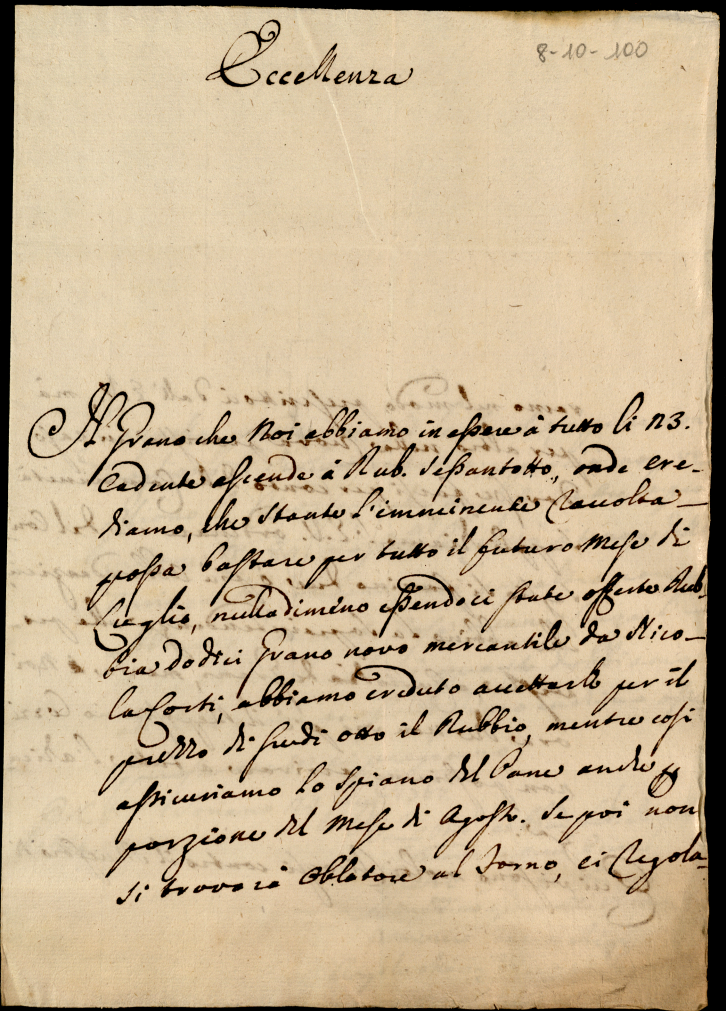 8-10-100
Eccellenza
Il Grano che Noi abbiamo in essere à tutto li 23.
Cadente ascende à Rub. Sessantotto, onde cre-
diamo, che stante l'imminente Raccolta
possa bastare per tutto il futuro Mese di
Luglio, nulladimeno essendoci state offerte Rub-
bia dodici Grano novo mercantile da Nico-
la Corti, abbiamo creduto accettarle per il
prezzo di scudi otto il Rubbio, mentre così
assicuriamo lo Spiano del Pane anche p
porzione del Mese di Agosto. Se poi non
si trovarà Oblatore al Forno, ci Regola-